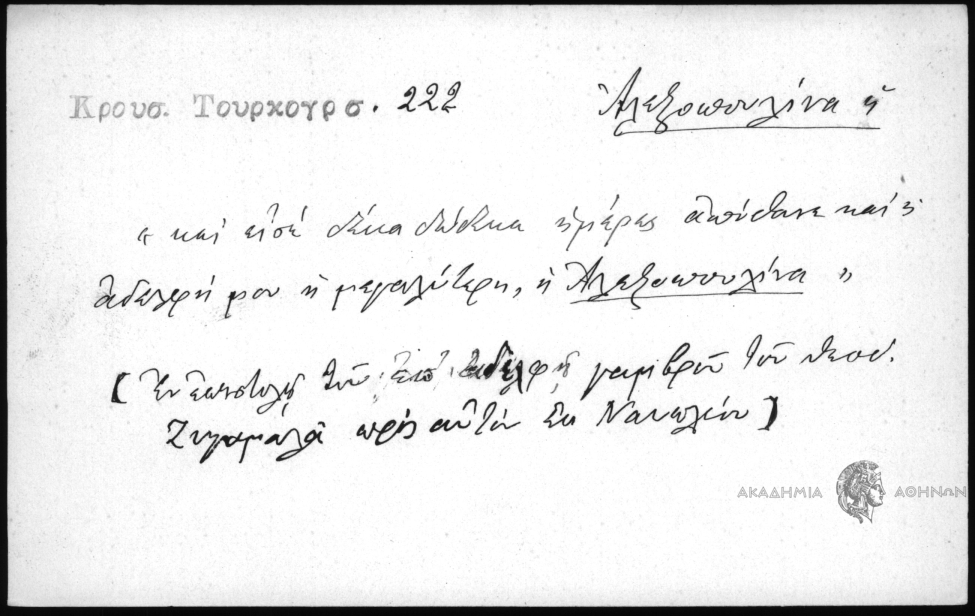 Κρουσ. Τουρκογρσ. 222 Ἀλεξοπουλίνα ἡ
„ καὶ εἰσὲ δέκα δώδεκα ἡμέρες ἀπόθανε καὶ ἡ
ἀδελφή μου ἡ μεγαλύτερη, ἡ Ἀλεξοπουλίνα „
[ Ἐν ἐπιστολῇ τοῦ ἐπ' ἀδελφῇ γαμβροῦ τοῦ Θεοδ.
Ζυγομαλᾶ πρὸς αὐτὸν ἐκ Ναυπλίου ]
ΑΚΑΔΗΜΙΑ ΑΘΗΝΩΝ